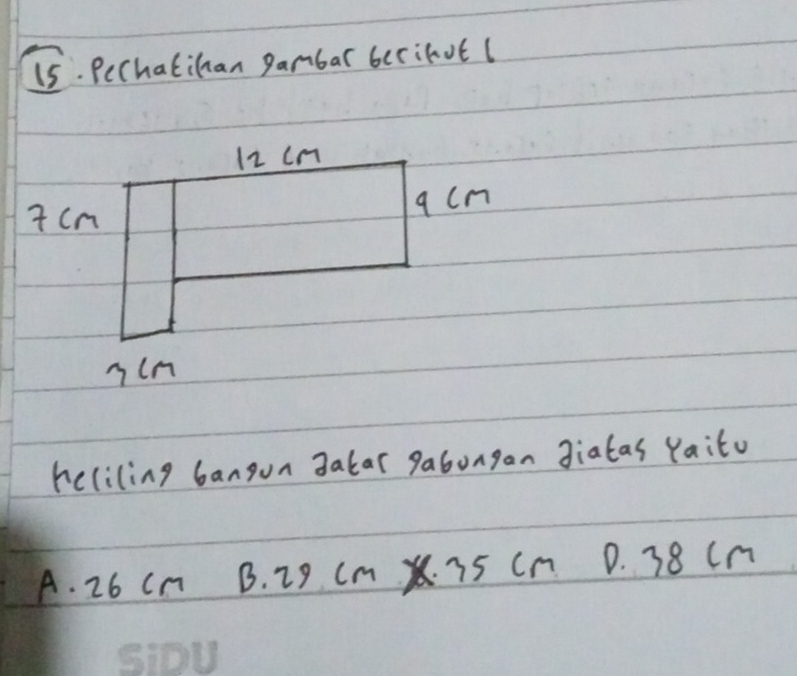 15. Perhatikan gambar berikut !
12 cm
7 cm
4 cm
3 cm
keliling bangun datar gabungan diatas yaitu
A. 26 cm B. 29 cm X. 35 cm D. 38 cm
SiDU